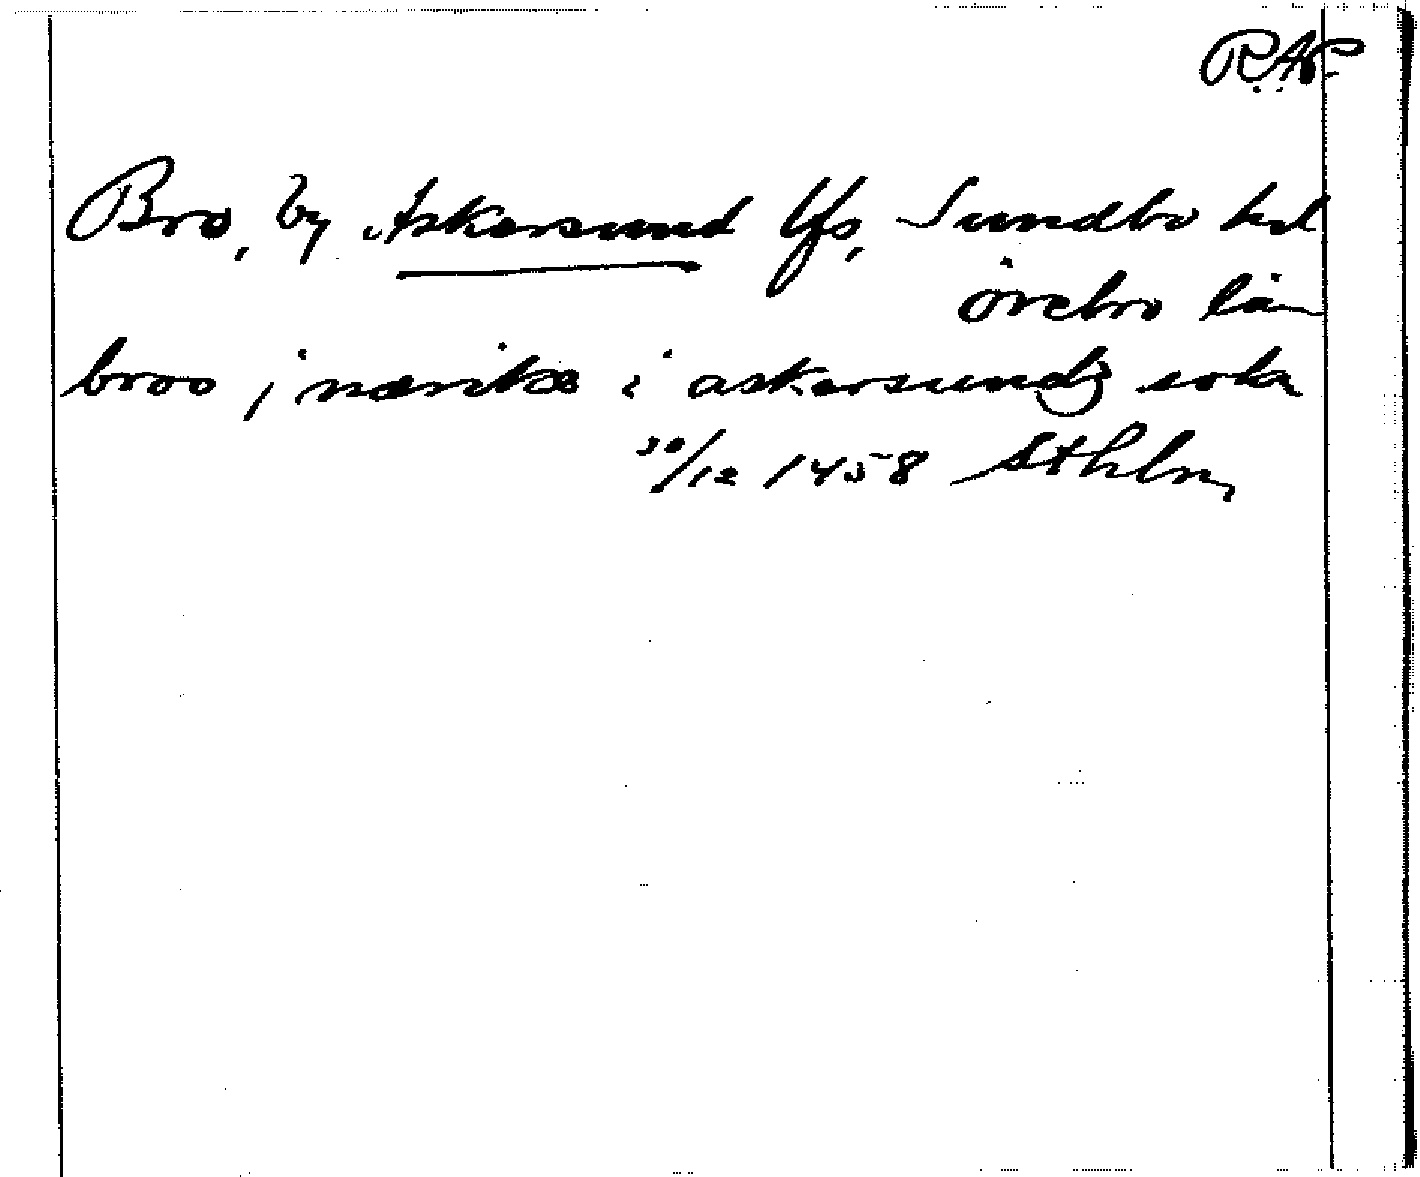 R.A.P.
Bro, by Askersund lfs, Sundbo hd
örebro län
broo j nærike i askersundz sokn
30/12 1458 Sthlm